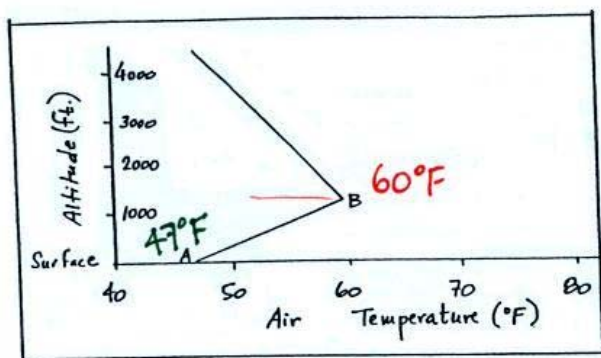 Altitude (ft.)
4000
3000
2000
1000
Surface
47°F
A
B
60°F
40
50
60
70
80
Air Temperature (°F)